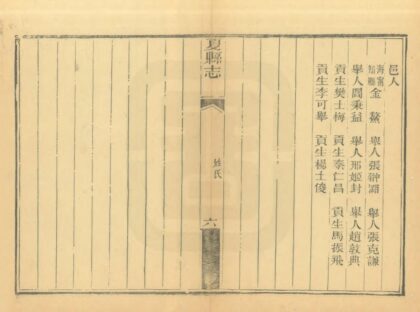 邑人
海甯知縣金鰲 舉人張翀霄 舉人張克謙
舉人閻秉益 舉人邢姬封 舉人趙敦典
貢生樊士梅 貢生秦仁昌 貢生馬振飛
貢生李可舉 貢生楊士俊
夏縣志
姓氏
六